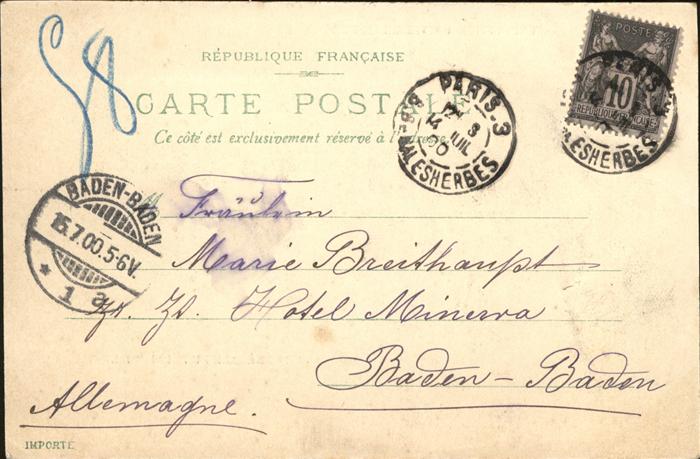 58
RÉPUBLIQUE FRANÇAISE
CARTE POSTALE
Ce côté est exclusivement réservé à l'adresse
POSTE
10
RÉPUBLIQUE FRANÇAISE
PARIS
MALESHERBES
PARIS-3
JUIL
MALESHERBES
BADEN-BADEN
15.7.00.5-6V.
* 1 a
Fräulein
Marie Breithaupt
Zt. Zt. Hotel Minerva
Baden-Baden
Allemagne.
IMPORTÉ